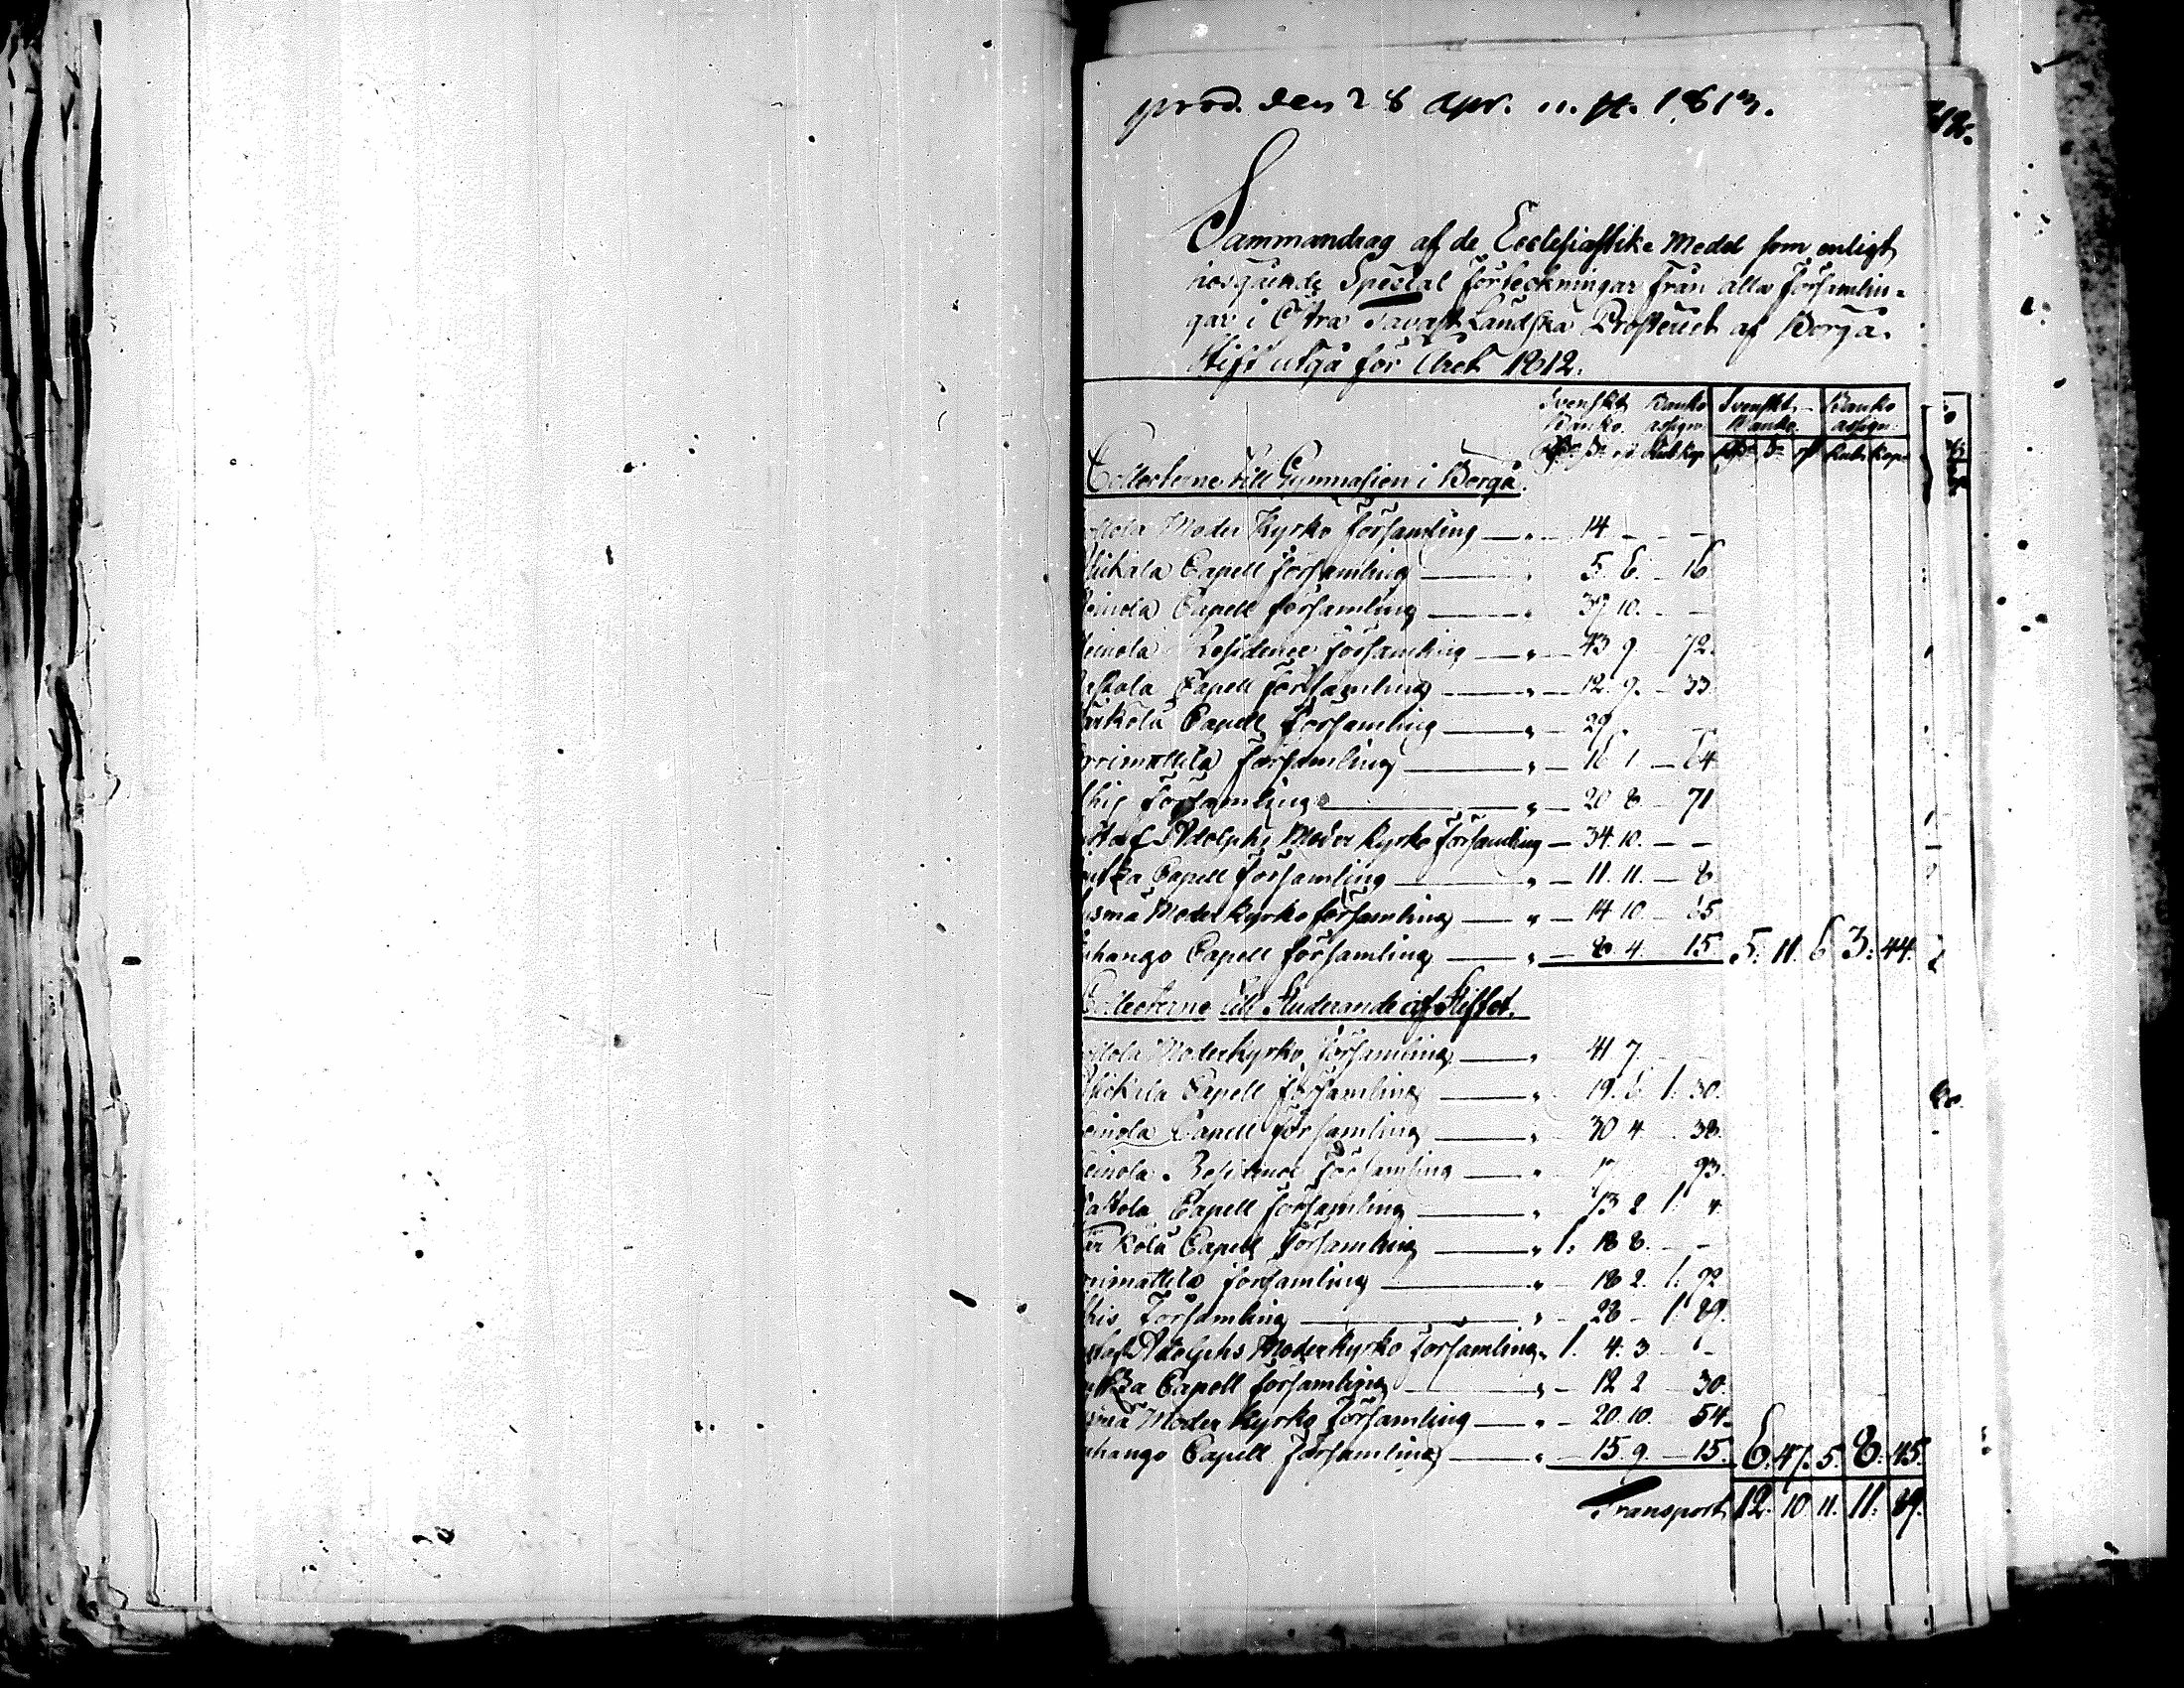 prod. den 28 Apr. n. st. 1813.
Sammandrag af de Ecclesiastike Medel som enligt
hosgående Special förteckningar från alla församlin-
gar i Östra Tavast Landska Prosteriet af Borgå
Stift utgå för Året 1812.
Svenskt Banko Svenskt Banko
Banko. assign. Banko. assign.
Rub. Kop. Rub. Kop.
Collecterne till Gymnasien i Borgå.
ollola Moder Kyrko församling — 14. – –
Capell församling — 5. 6. – 16
einola Capell församling — 37. 10. – –
einola Residence församling — 43 9 72.
astola Capell församling — 12. 9. – 33
ärkölä Capell församling — 29.
rrimattila församling — 16 1 – 64
församling — 20 8 – 71
staf Adolphs Moder Kyrko församling – 34. 10. – –
Capell församling — 11. 11. – 8
Moder Kyrko församling — 14. 10 – 65
Capell församling — 8. 4. 15 5. 11. 6 3. 44.
Collecterne till Studerande af Stiftet.
ollola Moderkyrko församling — 41 7
Capell församling — 19. 6 1. 30.
einola Capell församling — 30 4 38.
einola Residence församling — 17 93.
astola Capell församling — 13 2 1. 4.
är kölä Capell församling — 1. 18 8. – –
rimattila församling — 18 2. 1. 92
Församling — 28 – 1. 89.
staf Adolphs Moderkyrko Församling 1. 4. 3 – –
Capell församling — 12 2 30.
Moder Kyrko Församling — 20. 10. 54.
Capell Församling — 15. 9. – 15. 6. 47. 5. 8. 45.
Transport 12. 10. 11. 11. 89.